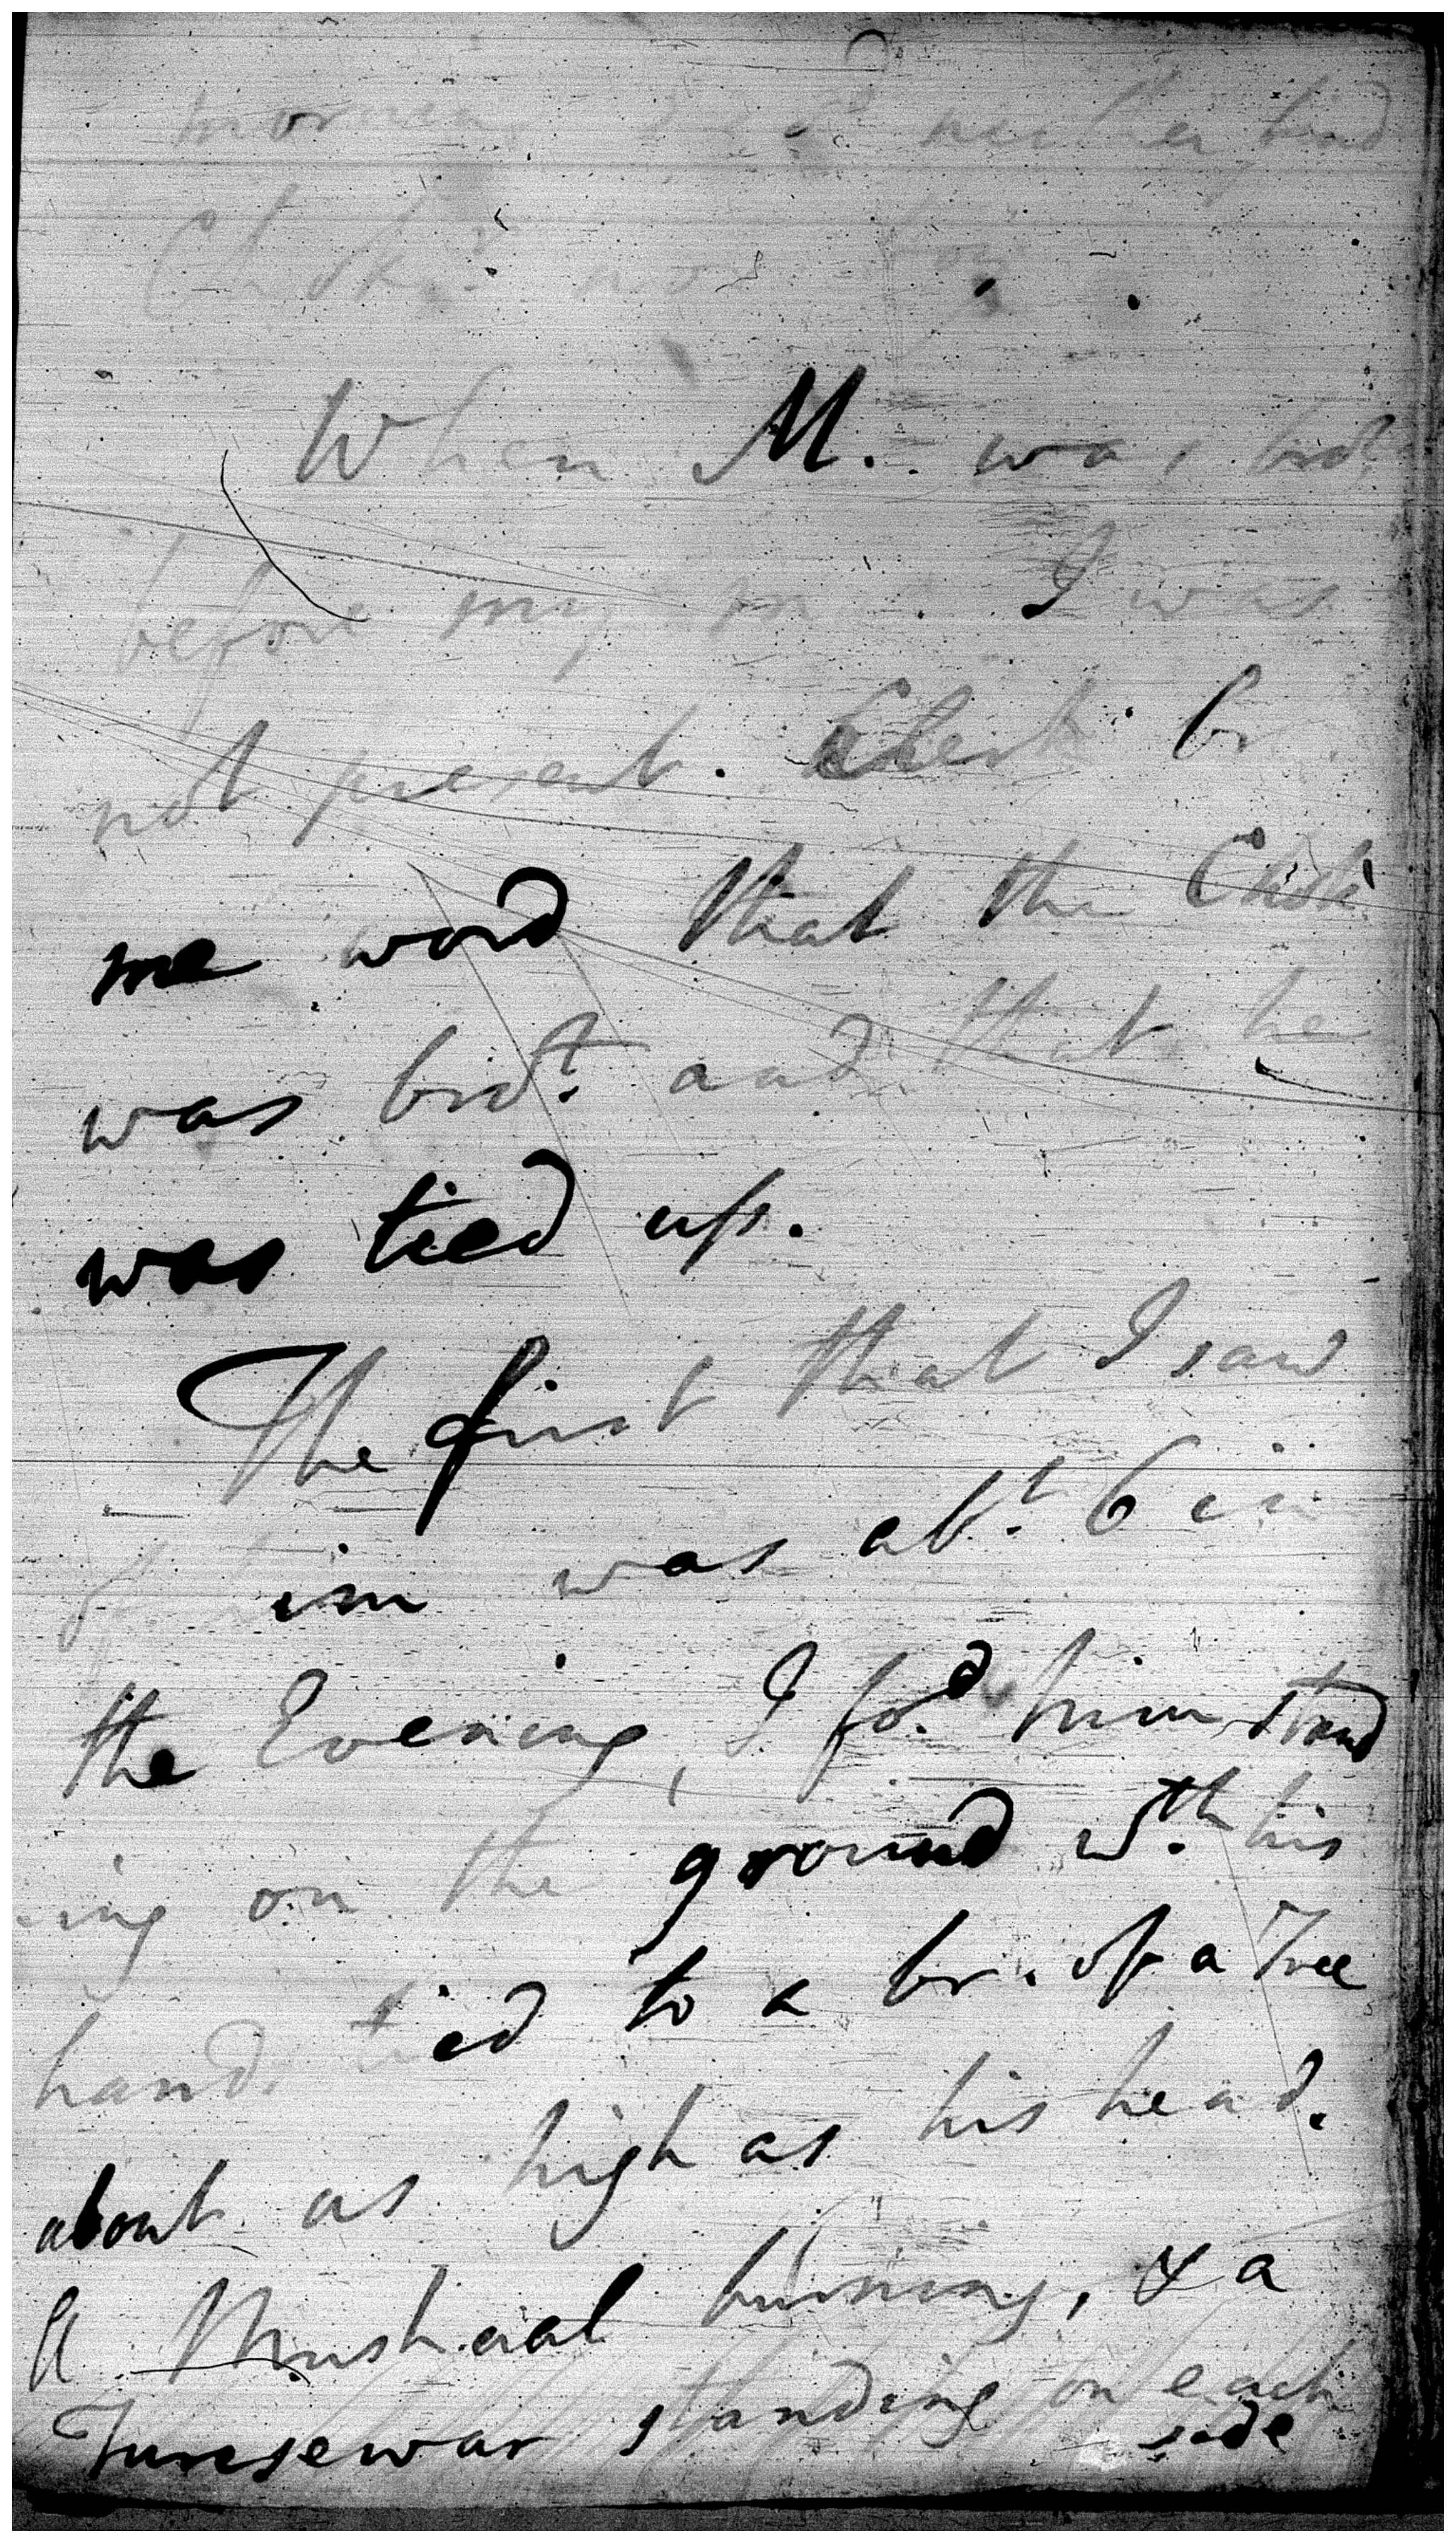 morning neither had
Chok.r nor
When M. was brot.
before my I was
not present. Clerk br
me word that the Chok.
was brot. and that he
was tied up.
The first that I saw
of him was abt. 6 in
the Evening, I fod. him stand
-ing on the ground wth. his
hands tied to a br. of a Tree
about as high as his head.
A Mushaal burning, & a
Tursewar standing on each
side